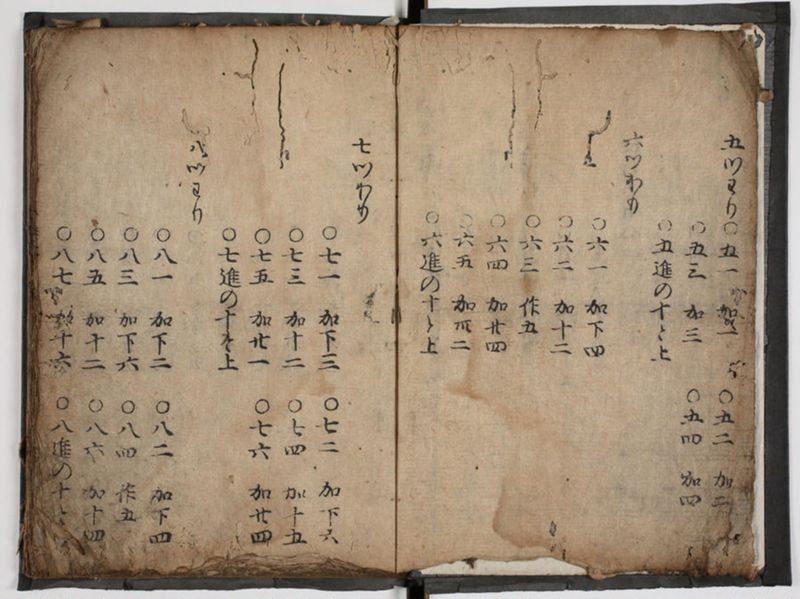 五ツわり ○五一 加一 ○五二 加二
○五三 加三 ○五四 加四
○五進の十ト上
六ツわり
○六一 加下四
○六二 加十二
○六三 作五
○六四 加廿四
○六五 加卅二
○六進の十ト上
七ツわり
○七一 加下三 ○七二 加下六
○七三 加十二 ○七四 加十五
○七五 加廿一 ○七六 加廿四
○七進の十ト上
八ツわり
○八一 加下二 ○八二 加下四
○八三 加下六 ○八四 作五
○八五 加十二 ○八六 加十四
○八七 加十六 ○八進の十ト